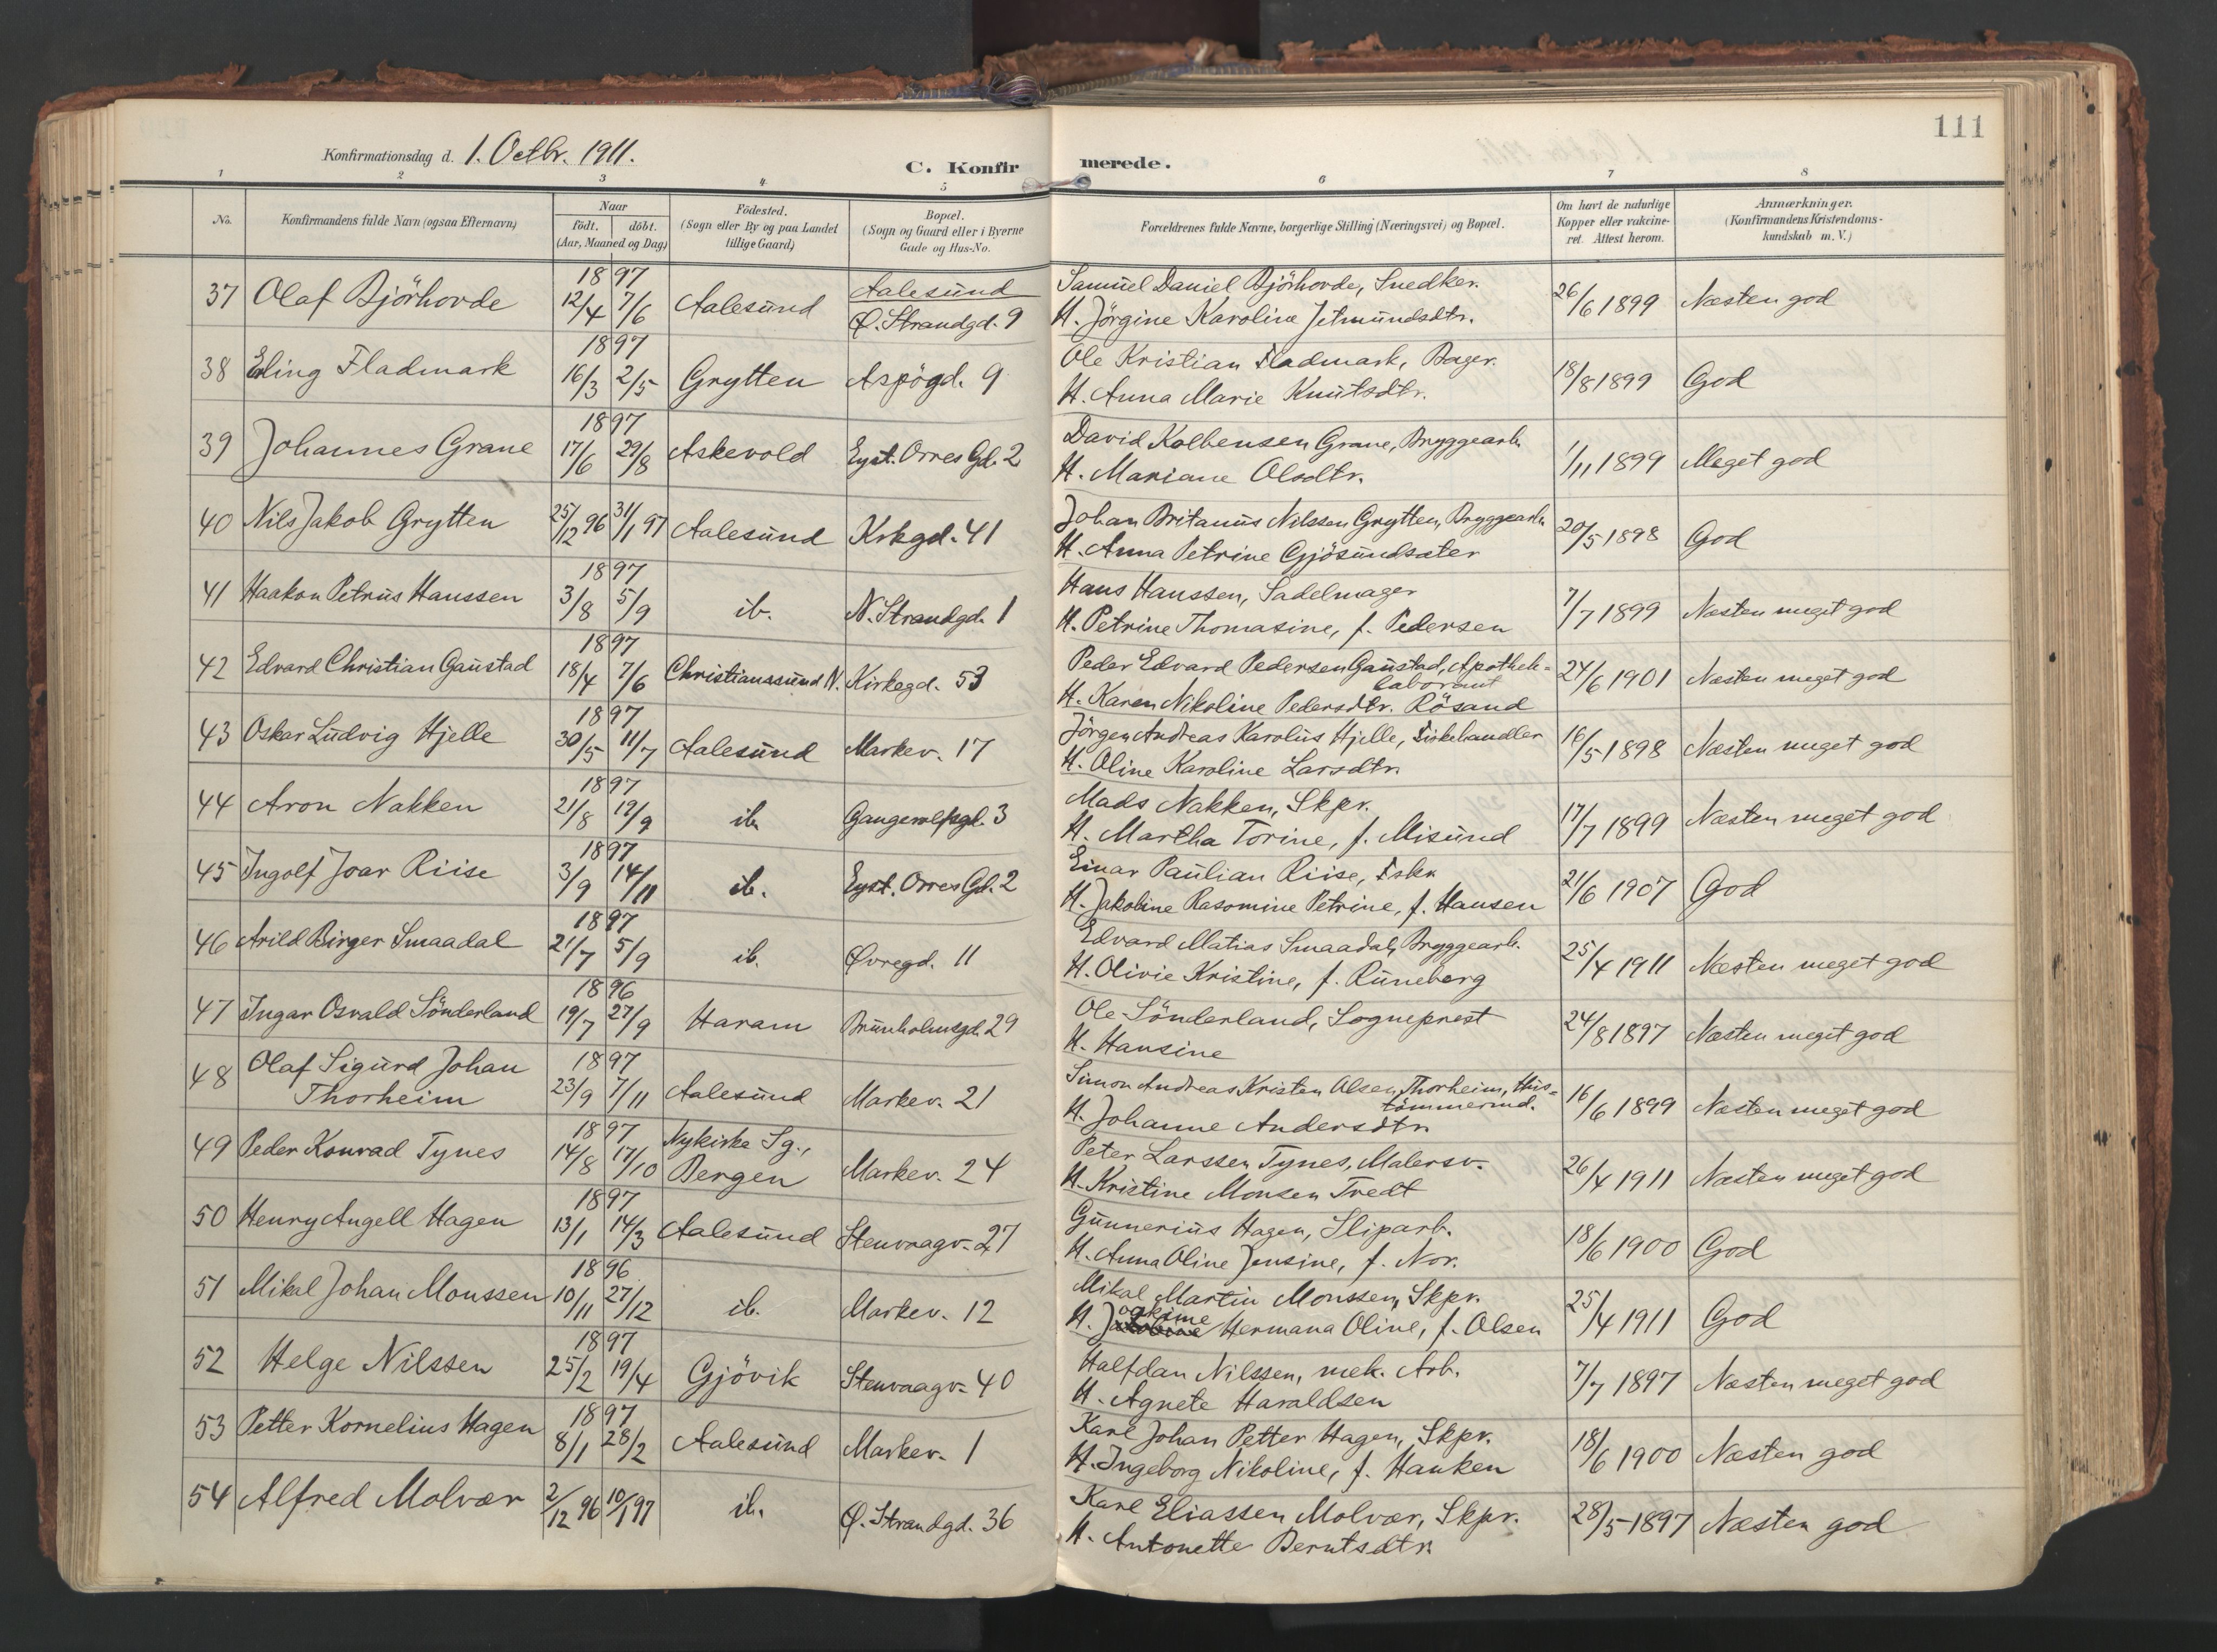 111
Konfirmationsdag d. 1. Octbr. 1911.
C. Konfirmerede.
1 2 3 4 5 6 7 8
No.
Konfirmandens fulde Navn (ogsaa Efternavn)
Naar
födt. döbt.
(Aar, Maaned og Dag)
Födested.
(Sogn eller By og paa Landet
tillige Gaard)
Bopæl.
(Sogn og Gaard eller i Byerne
Gade og Hus-No.
Forældrenes fulde Navne, borgerlige Stilling (Næringsvei) og Bopæl.
Om havt de naturlige
Kopper eller vakcine-
ret. Attest herom.
Anmærkninger.
(Konfirmandens Kristendoms-
kundskab m. V.)
37 Olaf Björhovde 1897 12/4 7/6 Aalesund Aalesund Ø. Strandgd. 9
Samuel Daniel Björhovde, Snedker.
H. Jörgine Karoline Jetmundsdtr.
26/6 1899 Næsten god
38 Erling Fladmark 1897 16/3 2/5 Grytten Aspögd. 9
Ole Kristian Fladmark, Bager.
H. Anna Marie Knutsdtr.
18/8 1899 God
39 Johannes Grane 1897 17/6 29/8 Askevold Eyst. Orres Gd. 2
David Kolbensen Grane, Bryggearb.
H. Mariane Olsdtr.
1/11 1899 Meget god
40 Nils Jakob Grytten 25/12 96 31/1 97 Aalesund Krkgd. 41
Johan Britanus Nilssen Grytten, Bryggearb.
H. Anna Petrine Gjösundsæter
20/5 1898 God
41 Haakon Petrus Hanssen 1897 3/8 5/9 ib. N. Strandgd. 1
Hans Hanssen, Sadelmager
H. Petrine Thomasine, f. Pedersen
7/7 1899 Næsten meget god
42 Edvard Christian Gaustad 1897 18/4 7/6 Christianssund N. Kirkegd. 53
Peder Edvard Pedersen Gaustad, Apothek-
laborant
H. Karen Nikoline Pedersdtr. Rösand
24/6 1901 Næsten meget god
43 Oskar Ludvig Hjelle 1897 30/5 11/7 Aalesund Markev. 17
Jörgen Andreas Karolus Hjelle, Fiskehandler
H. Oline Karoline Larsdtr.
16/5 1898 Næsten meget god
44 Aron Nakken 1897 21/8 19/9 ib. Gangerolfsgd. 3
Mads Nakken, Skpr.
H. Martha Torine, f. Misund
17/7 1899 Næsten meget god
45 Ingolf Joar Riise 1897 3/9 14/11 ib. Eyst. Orres Gd. 2
Einar Paulian Riise, Fskr.
H. Jakobine Rasomine Petrine, f. Hansen
21/6 1907 God
46 Arild Birger Smaadal 1897 21/7 5/9 ib. Øvregd. 11
Edvard Matias Smaadal, Bryggearb.
H. Olivie Kristine, f. Runeberg
25/4 1911 Næsten meget god
47 Ingar Osvald Sönderland 1896 19/7 27/9 Haram Brunholmsgd. 29
Ole Sönderland, Sogneprest
H. Hansine
24/8 1897 Næsten meget god
48 Olaf Sigurd Johan
Thorheim 1897 23/9 7/11 Aalesund Markev. 21
Simon Andreas Kristen Olsen Thorheim, Hus-
tömmermd.
H. Johanne Andersdtr.
16/6 1899 Næsten meget god
49 Peder Konrad Tynes 1897 14/8 17/10 Nykirke Sg., Bergen Markev. 24
Peter Larssen Tynes, Malersv.
H. Kristine Monsen Tredt
26/4 1911 Næsten meget god
50 Henry Angell Hagen 1897 13/1 14/3 Aalesund Stenvaagv. 27
Gunnerius Hagen, Sliparb.
H. Anna Oline Jensine, f. Nor.
18/6 1900 God
51 Mikal Johan Monssen 1896 10/11 27/12 ib. Markev. 12
Mikal Martin Monssen, Skpr.
H. Joakime Hermana Oline, f. Olsen
25/4 1911 God
52 Helge Nilssen 1897 25/2 19/4 Gjövik Stenvaagv. 40
Halfdan Nilssen, mek. Arb.
H. Agnete Haraldsen
7/7 1897 Næsten meget god
53 Petter Kornelius Hagen 1897 8/1 28/2 Aalesund Markev. 1
Karl Johan Petter Hagen, Skpr.
H. Ingeborg Nikoline, f. Hanken
18/6 1900 Næsten god
54 Alfred Molvær 2/12 96 10/1 97 ib. Ø. Strandgd. 36
Karl Eliassen Molvær, Skpr.
H. Antonette Berntsdtr.
28/5 1897 Næsten god